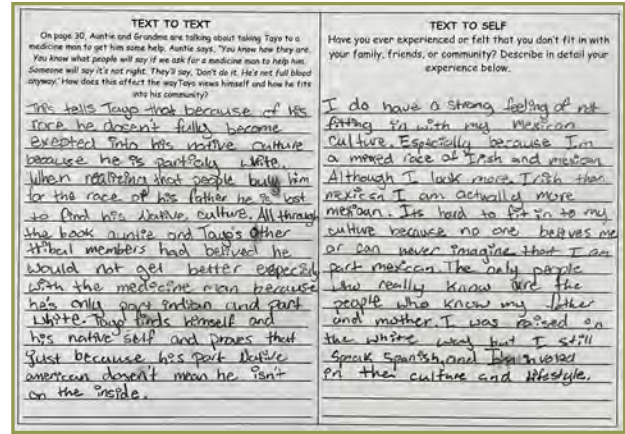 TEXT TO TEXT
On page 30, Auntie and Grandma are talking about taking Tayo to a
medicine man to get him some help. Auntie says, "You know how they are.
You know what people will say if we ask for a medicine man to help him.
Someone will say it's not right. They'll say, 'Don't do it. He's not full blood
anyway.' How does this affect the way Tayo views himself and how he fits
into his community?
This tells Tayo that because of his
race he dosen't fully become
exepted into his native culture
because he is partialy white.
When realizing that people bully him
for the race of his father he is lost
to find his Native, culture. All through
the book auntie and Tayo's other
tribal members had belived he
would not get better especialy
with the medicine man because
he's only part indian and part
white. Tayo finds himself and
his native self and proves that
just because his part Native
american dosen't mean he isn't
on the inside.
TEXT TO SELF
Have you ever experienced or felt that you don't fit in with
your family, friends, or community? Describe in detail your
experience below.
I do have a strong feeling of not
fitting in with my mexican
culture. Especially because I'm
a mixed race of Irish and mexican
Although I look more Irish than
mexican I am actually more
mexican. Its hard to fit in to my
culture because no one belives me
or can never imagine that I am
part mexican. The only people
who really know are the
people who know my father
and mother. I was raised in
the white way but I still
Speak Spanish, and involved
in the culture and lifestyle.